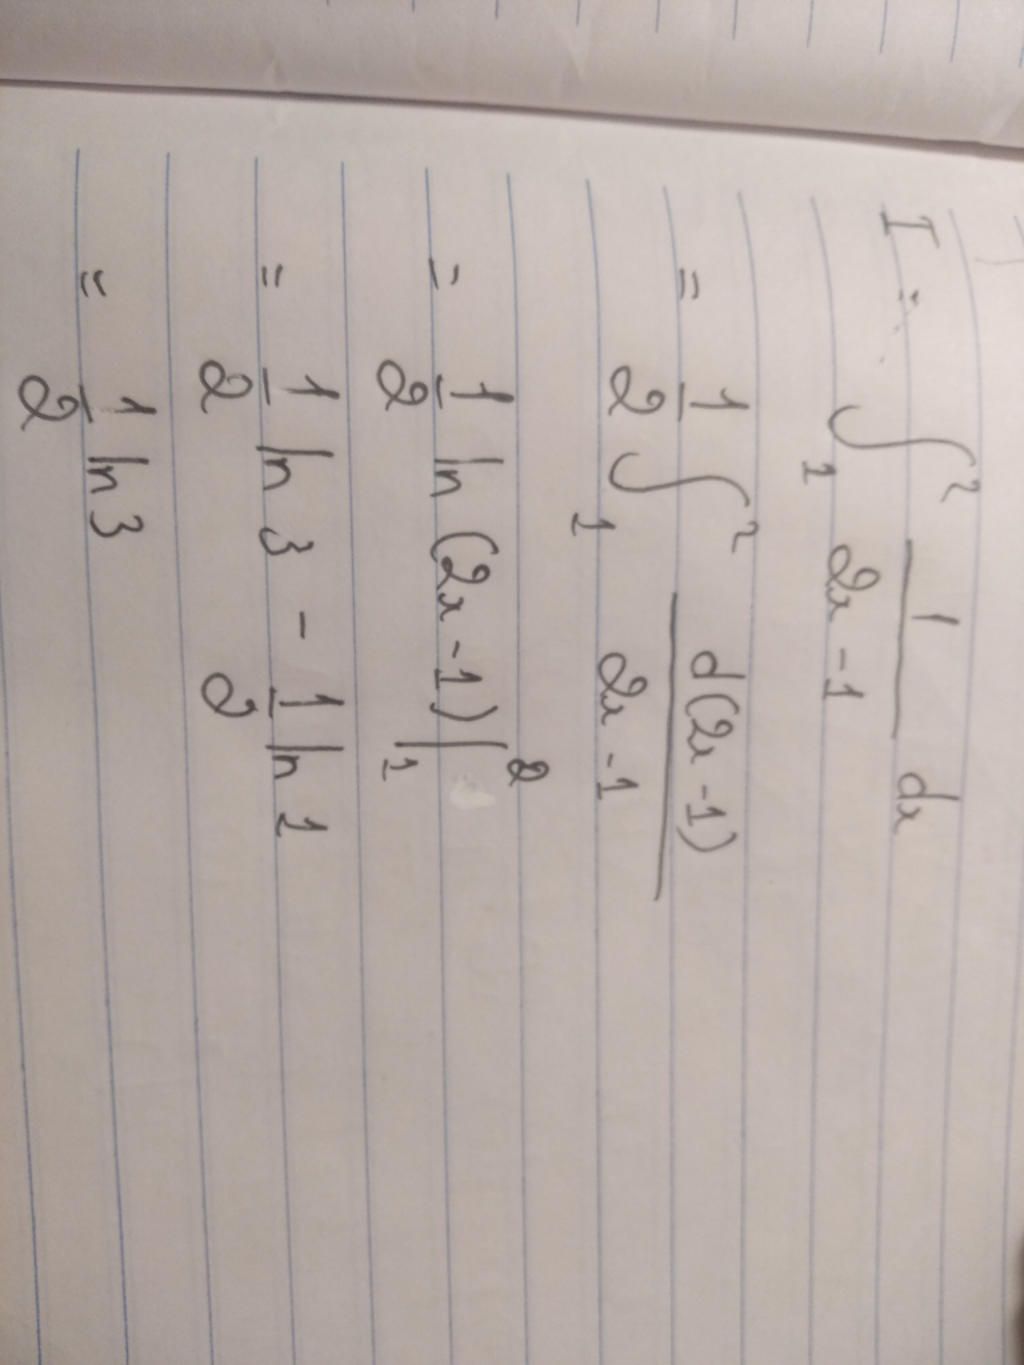 I = ∫₁² 1/(2x - 1) dx
= 1/2 ∫₁² d(2x - 1)/(2x - 1)
= 1/2 ln (2x - 1) |₁²
= 1/2 ln 3 - 1/2 ln 1
= 1/2 ln 3